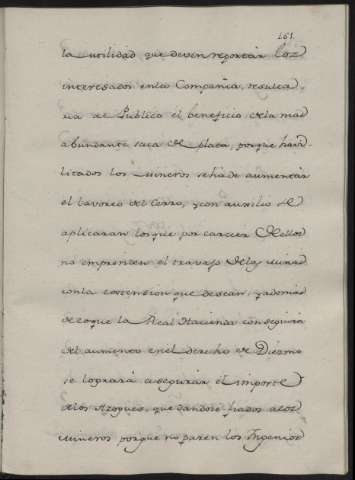 161.
la utilidad que deven reportar los
interesados enla Compañia, resulta-
ria al Publico el beneficio dela mas
abundante saca de plata, porque havi-
litados los Mineros seha de aumentar
el lavoreo del Cerro, y con auxilio se
aplicaran los que por carecer dellos
no emprenden el travajo delas Minas
conla extension que desean; y ademas
de eoque la Real Hacienda conseguirá
del aumento enel derecho de Diezmo
se logrará asegurar el importe
delos Azogues, que dandose fiados alos
Mineros porque no paren los Ingenios